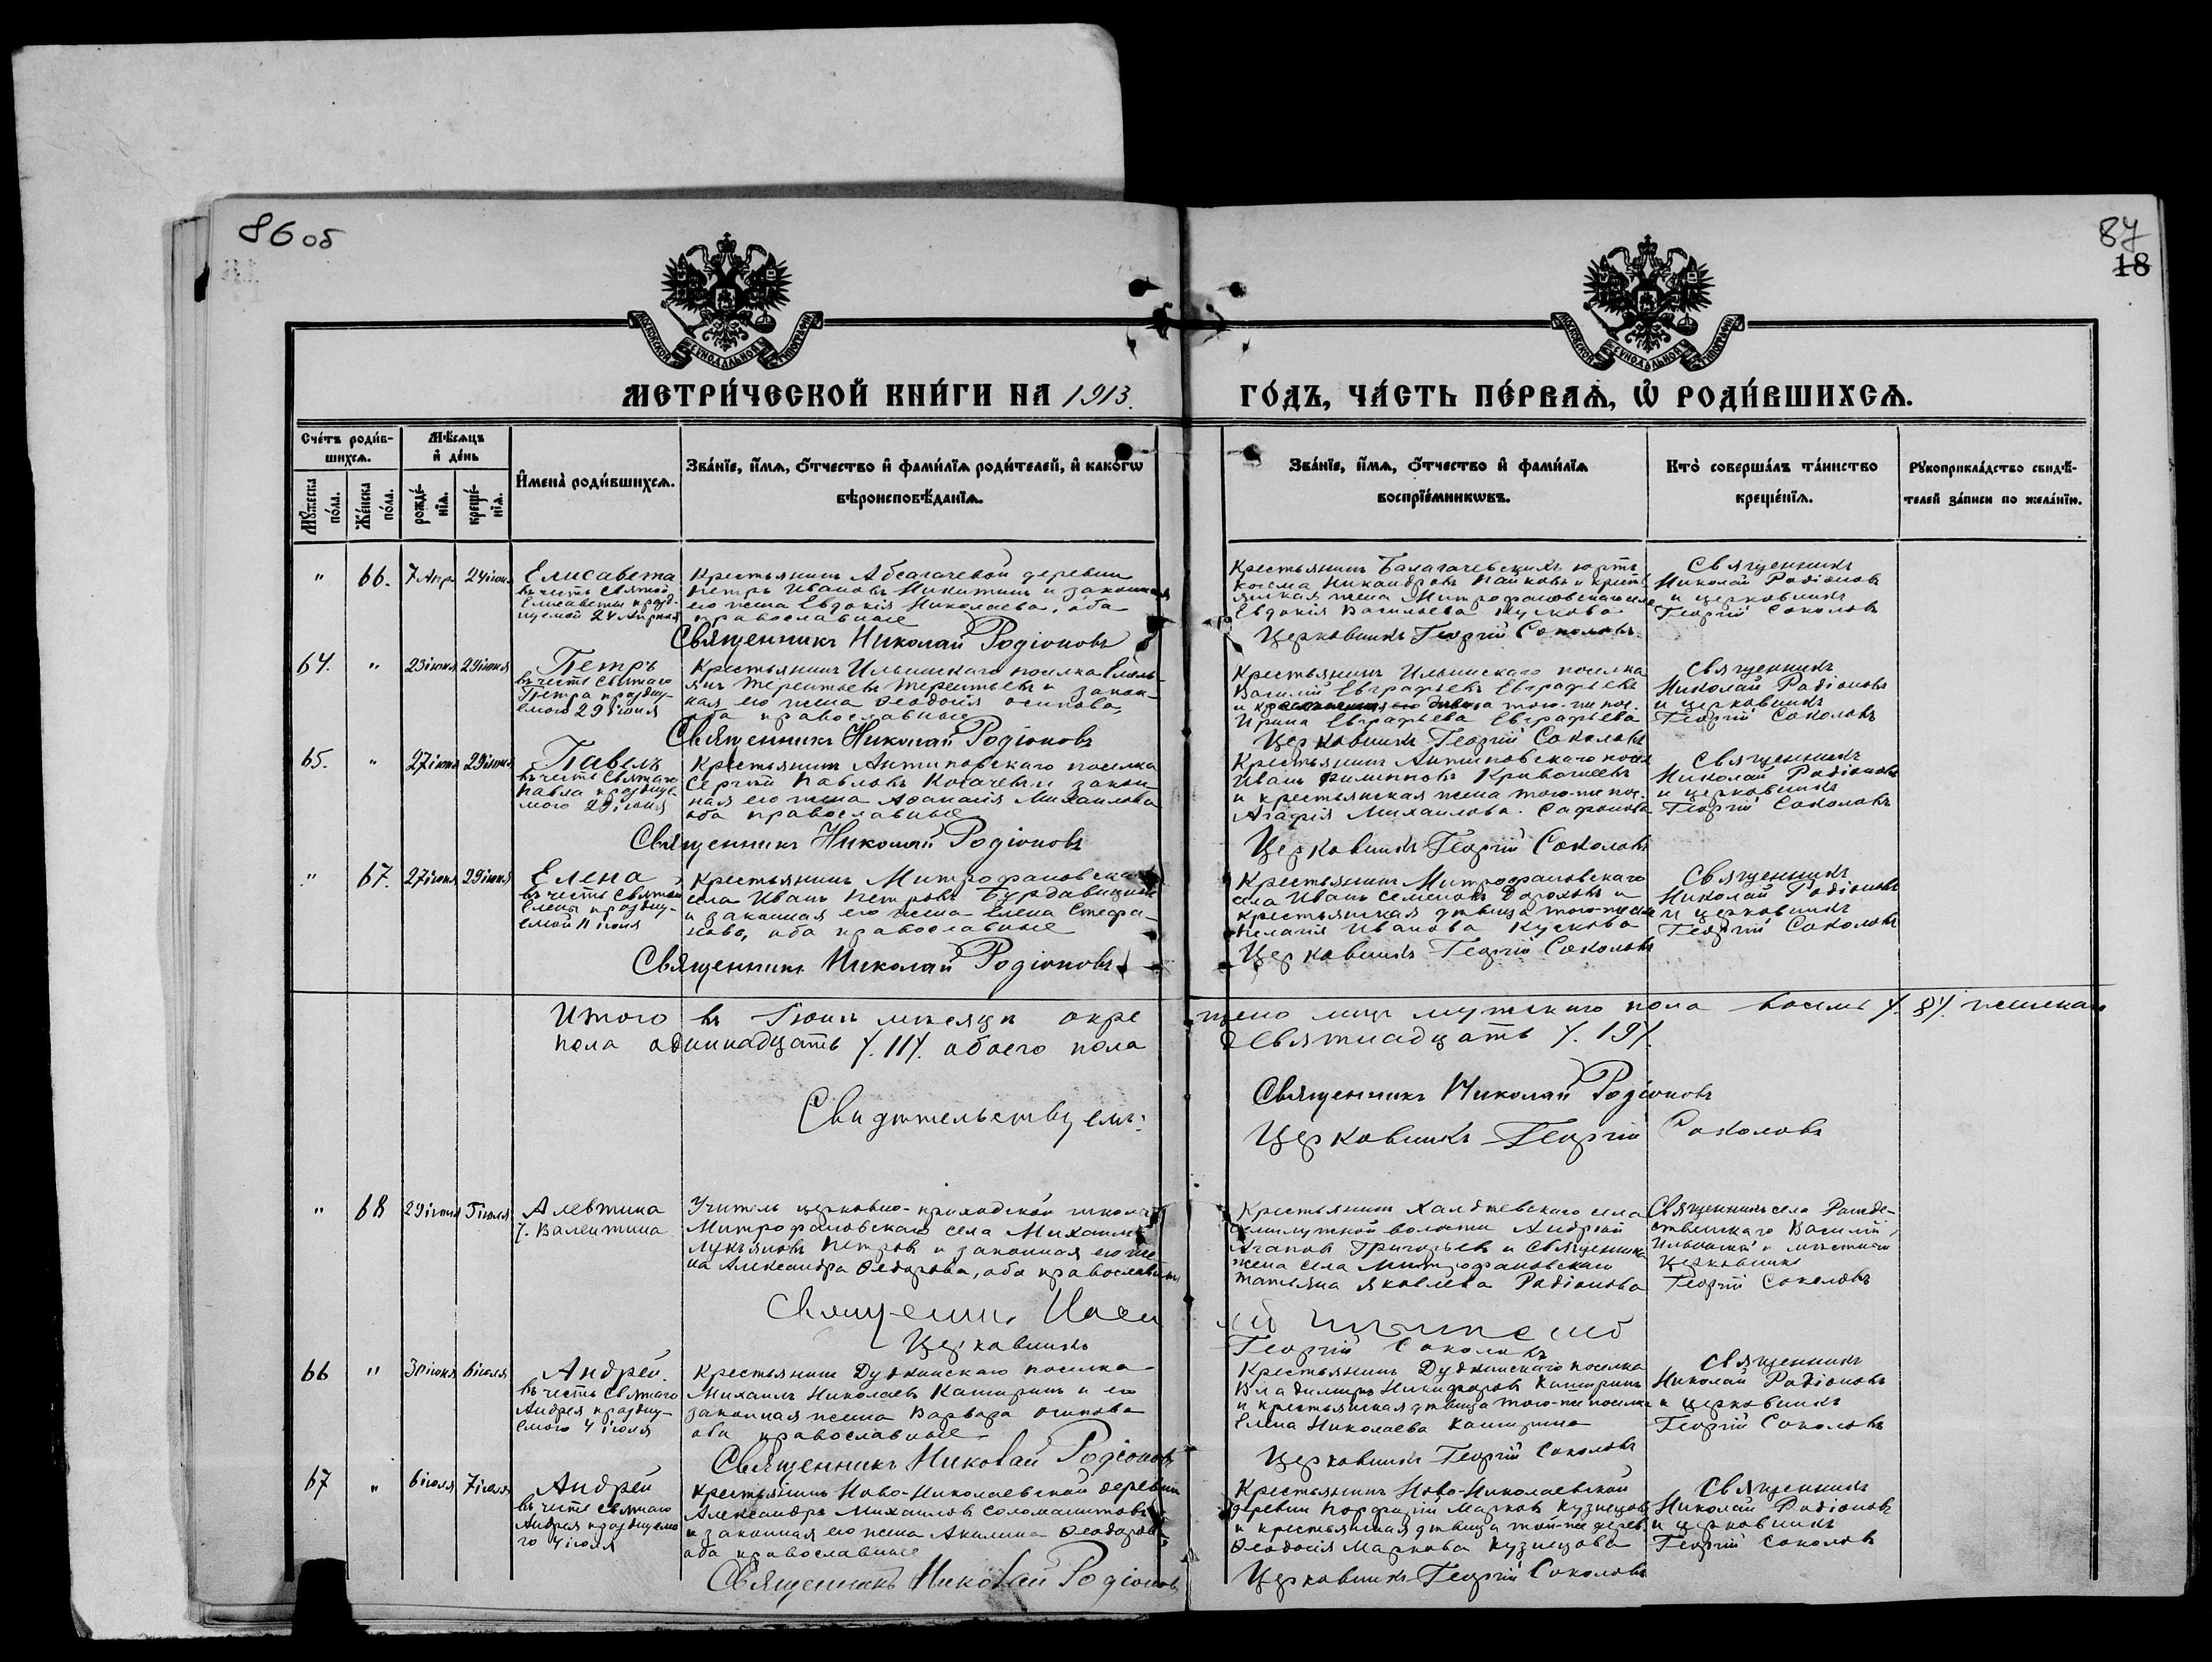 86 об
87
18
МОСКОВСКОЙ СѴНОДАЛЬНОЙ ТИПОГРАФІИ
МОСКОВСКОЙ СѴНОДАЛЬНОЙ ТИПОГРАФІИ
МЕТРИ́ЧЕСКОЙ КНИ́ГИ НА 1913.
ГО́ДЪ, ЧА́СТЬ ПЕ́РВАѦ, Ѽ РОДИ́ВШИХСѦ.
Сче́тъ роди́в-
шихсѧ.
Мѣ́сѧцъ
и҆ де́нь
Мꙋ́жеска по́ла.
Же́нска по́ла.
рожде́-нїѧ.
креще́-нїѧ.
И҆мена̀ роди́вшихсѧ.
Зва́нїе, и҆́мѧ, ѻ҆́тчество и҆ фами́лїѧ роди́телей, и҆ како́гѡ
вѣроисповѣ́данїѧ.
Зва́нїе, и҆́мѧ, ѻ҆́тчество и҆ фами́лїѧ
воспрїе́мникѡвъ.
Кто̀ соверша́лъ та́инство
креще́нїѧ.
Рꙋкоприкла́дство свидѣ́-
телей за́писи по жела́нїю.
" 66. 7 Апр. 24 іюня
Елисавета
въ честь Святой
Елисаветы празд-
нуемой 24 Апреля
Крестьянинъ Абсагачевой деревни
Петръ Ивановъ Никитинъ и законная
его жена Евдокія Николаева, оба
православные
Священникъ Николай Родіоновъ
Крестьянинъ Балагачевскихъ юртъ
Косма Никандровъ Пайковъ и кресть-
янская жена Митрофановскаго села
Евдокія Васильева Кускова
Церковникъ Георгій Соколовъ
Священникъ
Николай Родіоновъ
и церковникъ
Георгій Соколовъ
64. " 23 іюня 29 іюня
Петръ
въ честь Святаго
Петра праздну-
емого 29 іюня
Крестьянинъ Ильинскаго поселка Емель-
янъ Терентьевъ Терентьевъ и закон-
ная его жена Ѳеодосія Осипова,
оба православные
Священникъ Николай Родіоновъ
Крестьянинъ Ильинскаго поселка
Василій Евграфьевъ Евграфьевъ
и того-же пос.
Ирина Евграфьева Евграфьева
Церковникъ Георгій Соколовъ
Священникъ
Николай Родіоновъ
и церковникъ
Георгій Соколовъ
65. " 27 іюня 29 іюня
Павелъ
въ честь Святаго
Павла праздну-
емого 29 іюня
Крестьянинъ Антиповскаго поселка
Сергій Павловъ Когачевъ и закон-
ная его жена Аѳанасія Михаилова
оба православные
Священникъ Николай Родіоновъ
Крестьянинъ Антиповскаго посел.
Иванъ Филипповъ Кривошеевъ
и крестьянская жена того-же пос.
Агафія Михаилова Сафонова
Церковникъ Георгій Соколовъ
Священникъ
Николай Родіоновъ
и церковникъ
Георгій Соколовъ
" 67. 27 іюня 29 іюня
Елена
въ честь Святой
Елены праздну-
емой 11 іюля
Крестьянинъ Митрофановскаго
села Иванъ Петровъ Бурдавицынъ
и законная его жена Елена Стефа-
нова, оба православные
Священникъ Николай Родіоновъ
Крестьянинъ Митрофановскаго
села Иванъ Семеновъ Дороховъ и
крестьянская дѣвица того-же села
Пелагія Иванова Кускова
Церковникъ Георгій Соколовъ
Священникъ
Николай Родіоновъ
и церковникъ
Георгій Соколовъ
Итого въ Іюнѣ мѣсяцѣ окре
щено лицъ мужскаго пола восемь /. 8 /. женскаго
пола одиннадцать /. 11 /. обоего пола
девятнадцать /. 19 /.
Священникъ Николай Родіоновъ
Свидѣтельствуемъ:
Церковникъ Георгій Соколовъ
" 68 29 іюня 5 іюля
Алевтина
/. Валентина
Учитель церковно-приходской школы
Митрофановскаго села Михаилъ
Лукьяновъ Петровъ и законная его же-
на Александра Ѳедорова, оба православные
Церковникъ
Крестьянинъ Халдѣевскаго села
Семилужной волости Андрей
Агаповъ Григорьевъ и Священника
жена села Митрофановскаго
Татьяна Яковлева Родіонова
Георгій Соколовъ
Священникъ села Рожде-
ственскаго Василій
Ильинскій и мѣстный
церковникъ
Георгій Соколовъ
66 " 30 іюня 6 іюля
Андрей.
въ честь Святаго
Андрея праздну-
емого 4 іюля
Крестьянинъ Дуджинскаго поселка
Михаилъ Николаевъ Каширинъ и его
законная жена Варвара Осипова
оба православные
Священникъ Николай Родіоновъ
Крестьянинъ Дуджинскаго поселка
Владимиръ Никифоровъ Каширинъ
и крестьянская дѣвица того-же поселка
Елена Николаева Каширина
Церковникъ Георгій Соколовъ
Священникъ
Николай Родіоновъ
и церковникъ
Георгій Соколовъ
67 " 6 іюля 7 іюля
Андрей
въ честь святаго
Андрея празднуемо
го 4 іюля
Крестьянинъ Ново-Николаевской деревни
Александръ Михаиловъ Соломатовъ
и законная его жена Акилина Ѳеодорова
оба православные
Священникъ Николай Родіоновъ
Крестьянинъ Ново-Николаевской
деревни Порфирій Марковъ Кузнецовъ
и крестьянская дѣвица той-же дерев.
Ѳеодосія Маркова Кузнецова
Церковникъ Георгій Соколовъ
Священникъ
Николай Родіоновъ
и церковникъ
Георгій Соколовъ